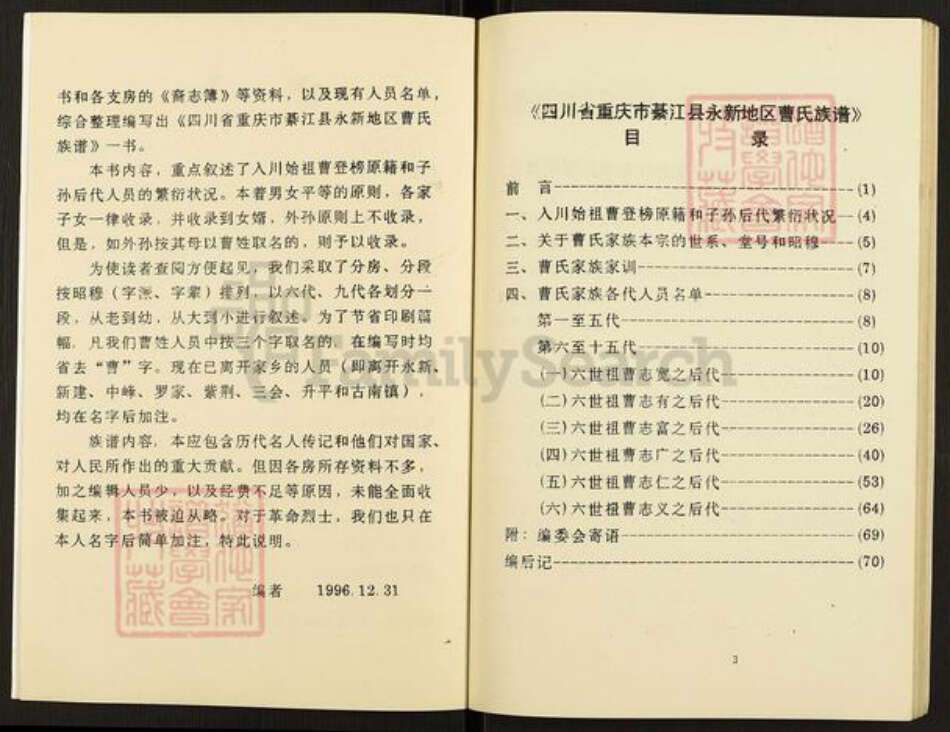 书和各支房的《裔志簿》等资料，以及现有人员名单，
综合整理编写出《四川省重庆市綦江县永新地区曹氏
族谱》一书。
本书内容，重点叙述了入川始祖曹登榜原籍和子
孙后代人员的繁衍状况。本着男女平等的原则，各家
子女一律收录，并收录到女婿，外孙原则上不收录，
但是，如外孙按其母以曹姓取名的，则予以收录。
为使读者查阅方便起见，我们采取了分房、分段
按昭穆（字派、字辈）排列，以六代、九代各划分一
段，从老到幼，从大到小进行叙述。为了节省印刷篇
幅，凡我们曹姓人员中按三个字取名的，在编写时均
省去“曹”字。现在已离开家乡的人员（即离开永新、
新建、中峰、罗家、紫荆、三会、升平和古南镇），
均在名字后加注。
族谱内容，本应包含历代名人传记和他们对国家、
对人民所作出的重大贡献。但因各房所存资料不多，
加之编辑人员少，以及经费不足等原因，未能全面收
集起来，本书被迫从略。对于革命烈士，我们也只在
本人名字后简单加注，特此说明。
编者 1996.12.31
《四川省重庆市綦江县永新地区曹氏族谱》
目 录
前 言---(1)
一、入川始祖曹登榜原籍和子孙后代繁衍状况---(4)
二、关于曹氏家族本宗的世系、堂号和昭穆---(5)
三、曹氏家族家训---(7)
四、曹氏家族各代人员名单---(8)
第一至五代---(8)
第六至十五代---(10)
(一)六世祖曹志宽之后代---(10)
(二)六世祖曹志有之后代---(20)
(三)六世祖曹志富之后代---(26)
(四)六世祖曹志广之后代---(40)
(五)六世祖曹志仁之后代---(53)
(六)六世祖曹志义之后代---(64)
附：编委会寄语---(69)
编后记---(70)
3
FamilySearch